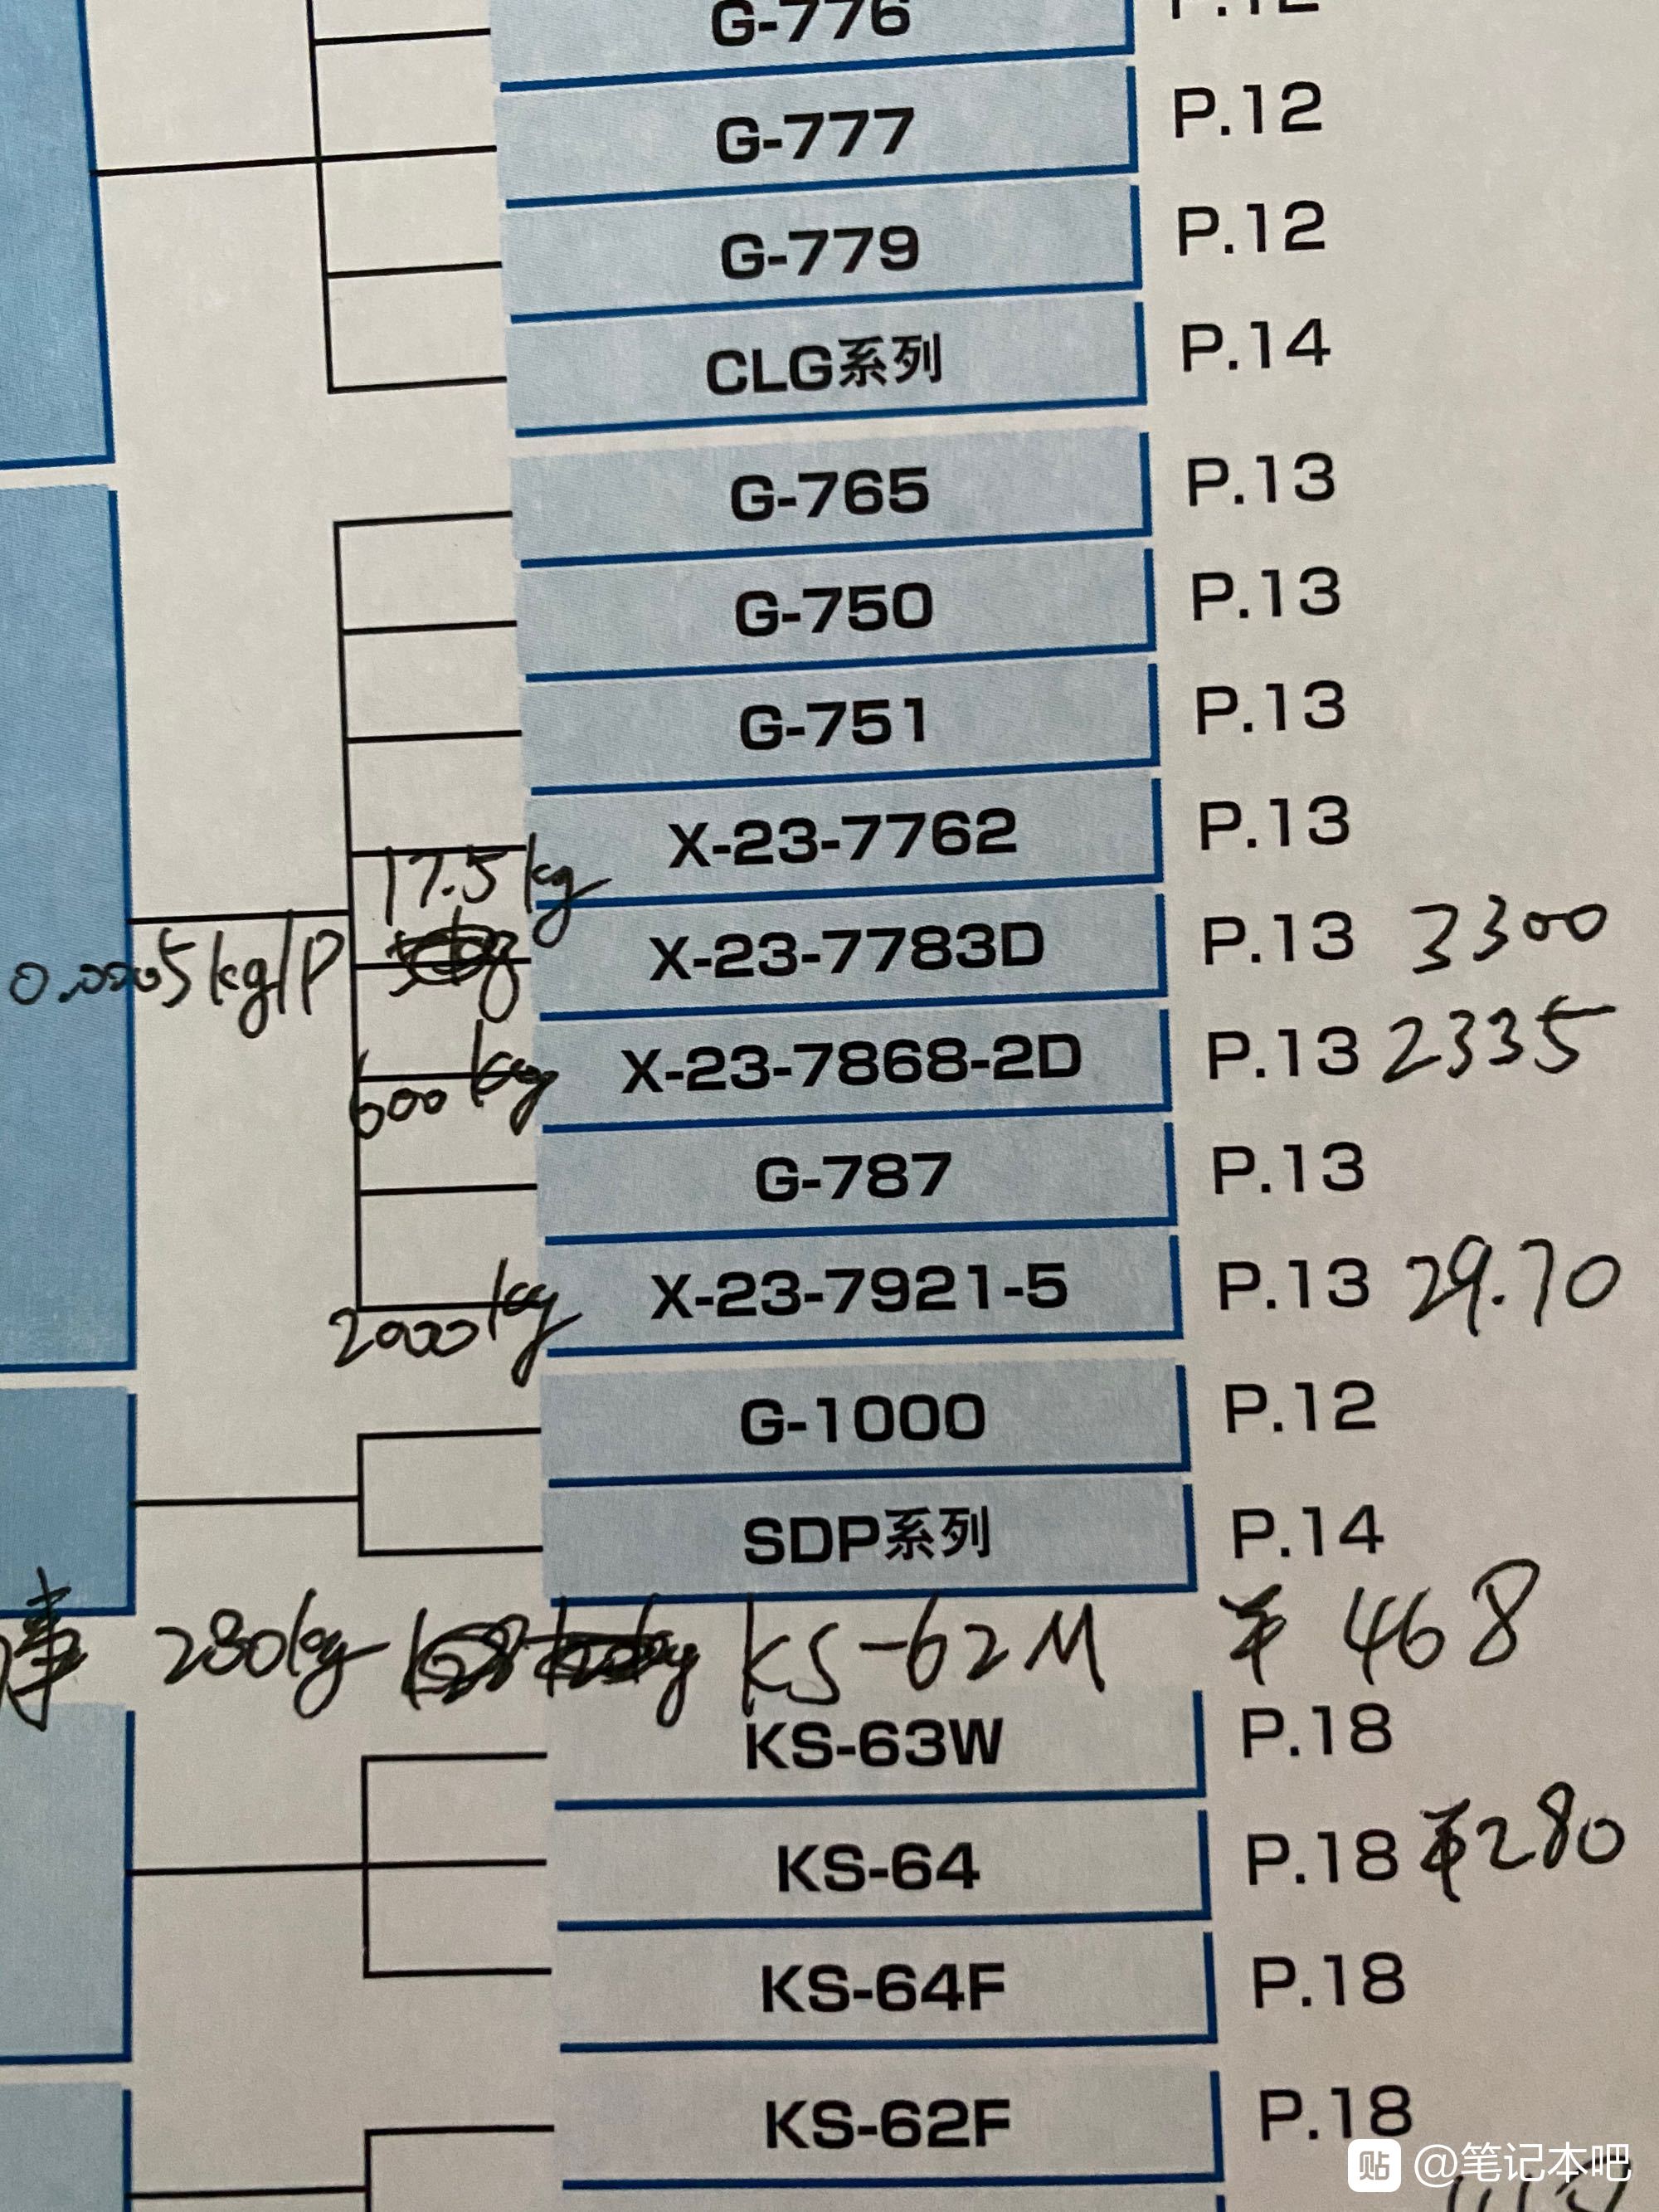 G-776 P.12
G-777 P.12
G-779 P.12
CLG系列 P.14
G-765 P.13
G-750 P.13
G-751 P.13
X-23-7762 P.13
17.5kg X-23-7783D P.13 3300
0.0005kg/P
600kg X-23-7868-2D P.13 2335
G-787 P.13
2000kg X-23-7921-5 P.13 29.70
G-1000 P.12
SDP系列 P.14
280kg KS-62M ¥ 468
KS-63W P.18
KS-64 P.18 ¥280
KS-64F P.18
KS-62F P.18
贴 @笔记本吧